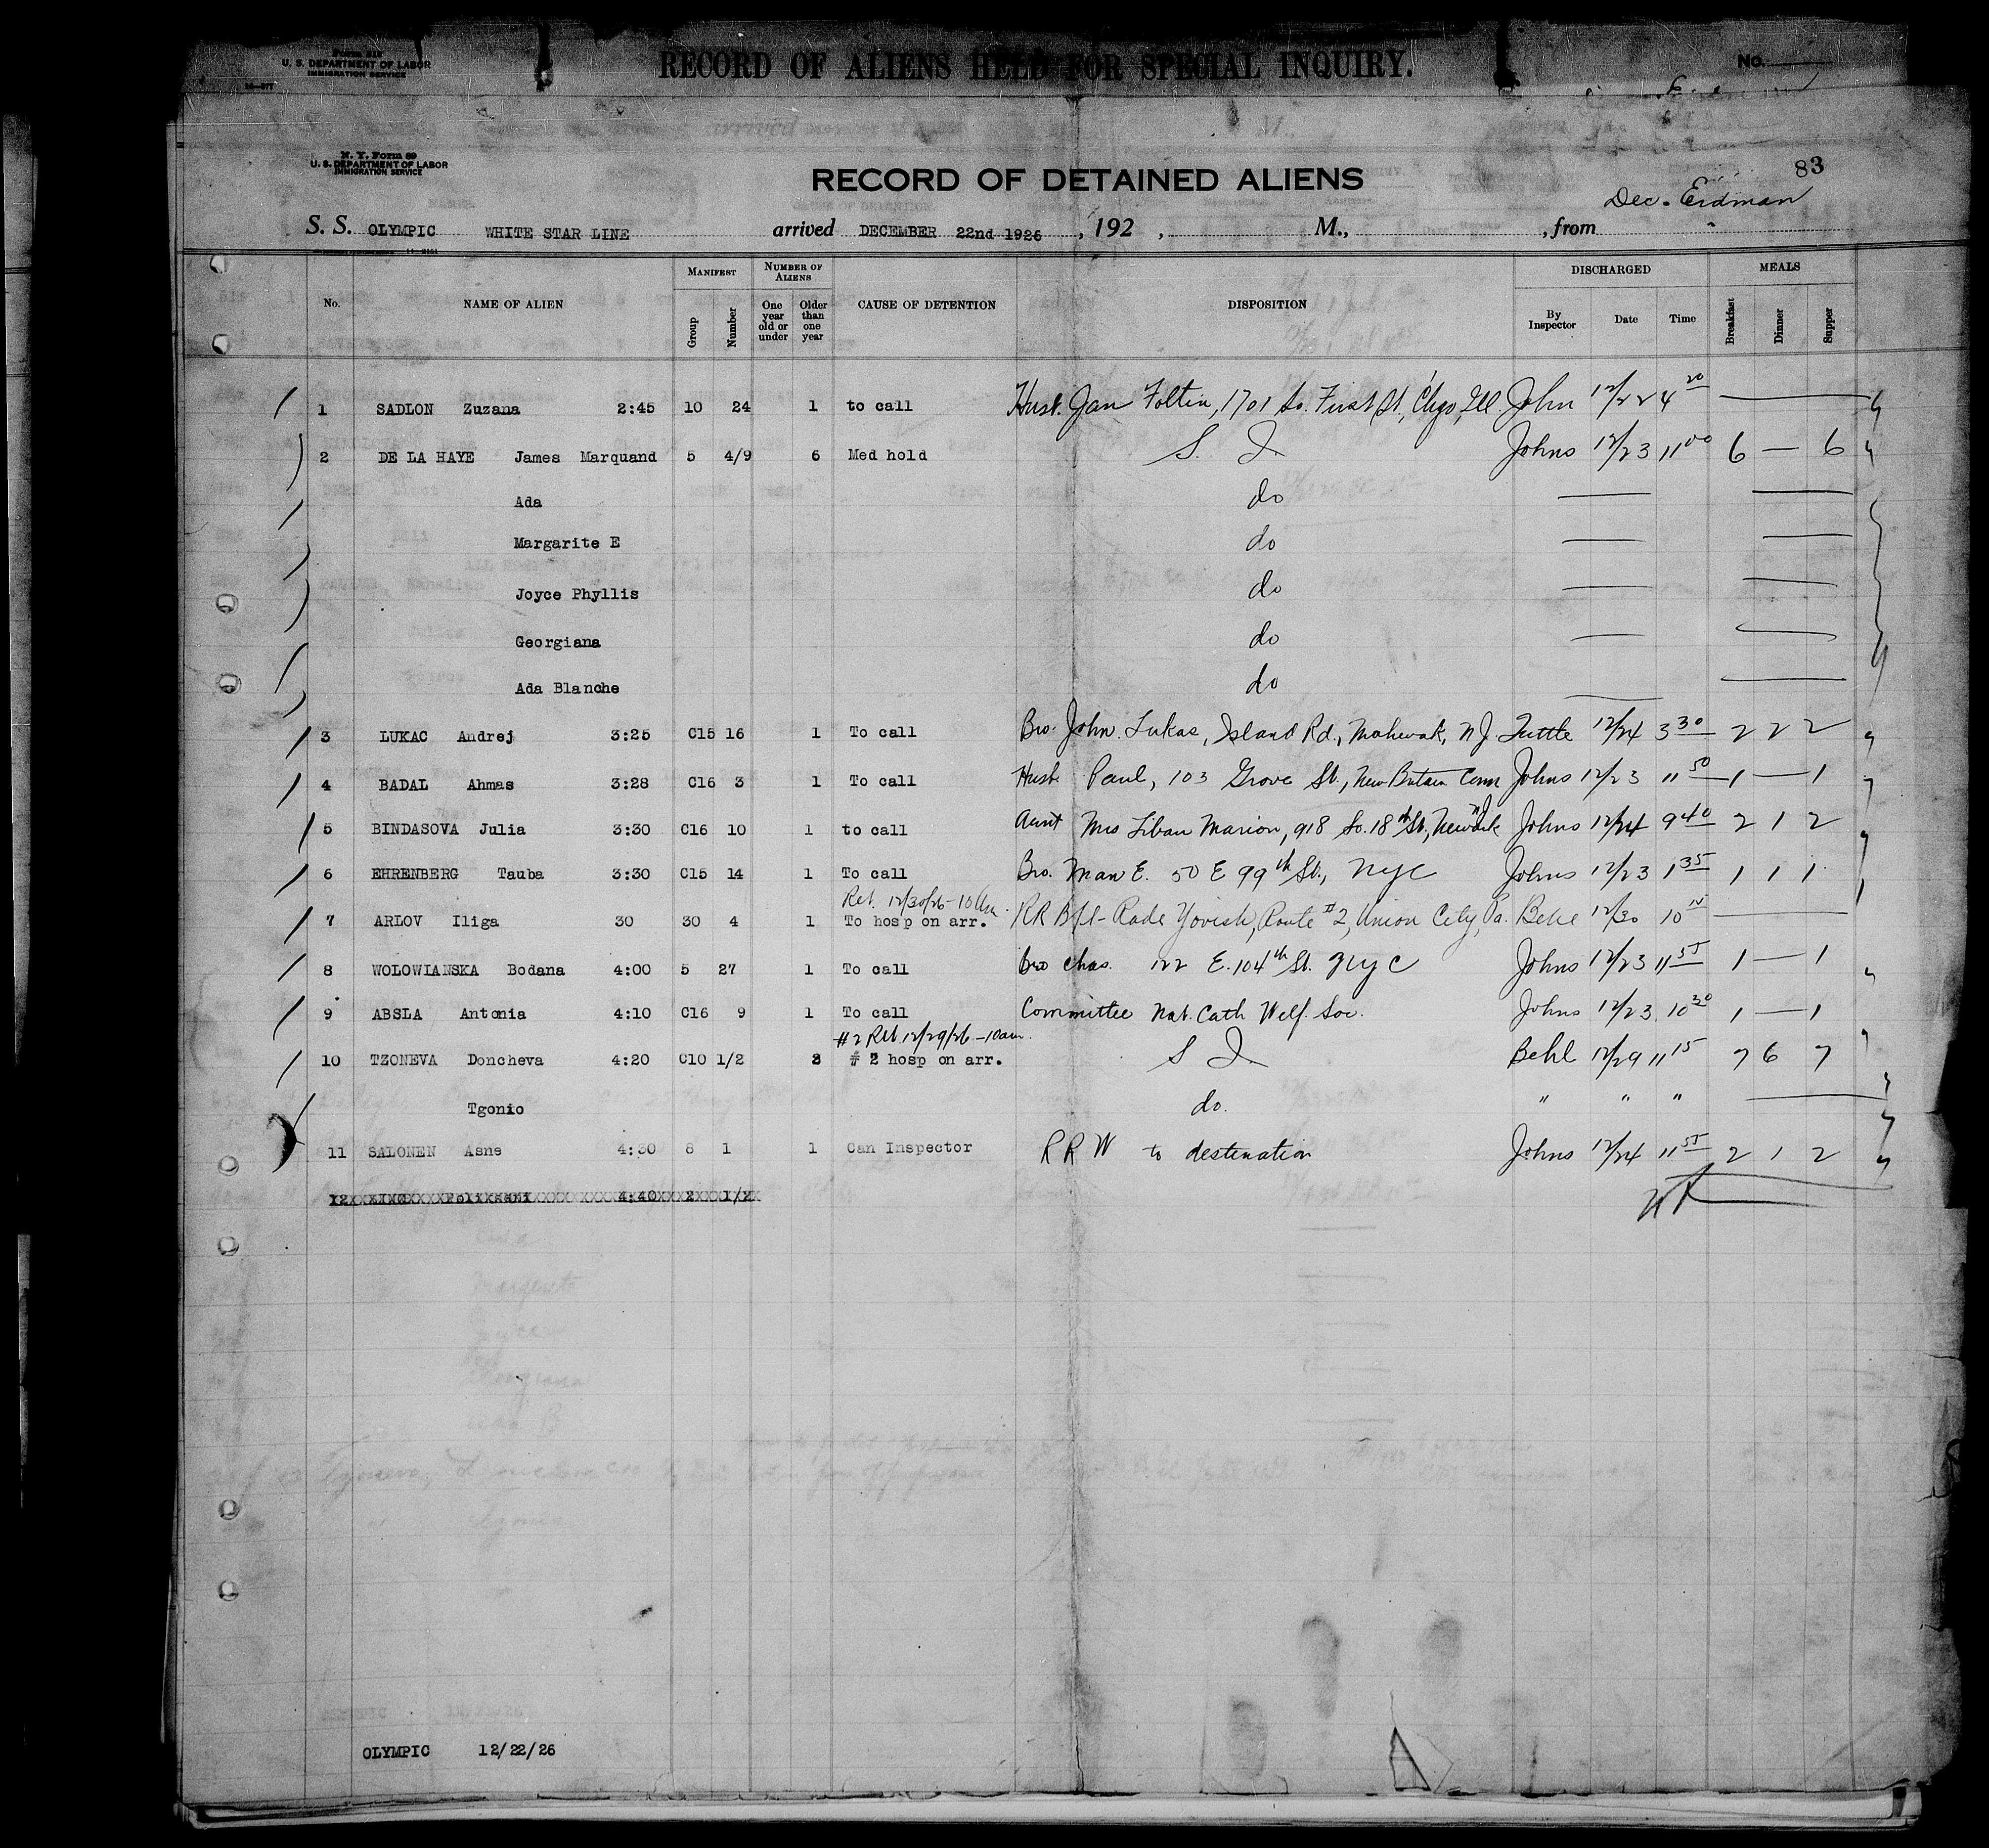 Form 518
U. S. DEPARTMENT OF LABOR
IMMIGRATION SERVICE
RECORD OF ALIENS HELD FOR SPECIAL INQUIRY.
No.
N. Y. Form 89
U. S. DEPARTMENT OF LABOR
IMMIGRATION SERVICE
RECORD OF DETAINED ALIENS
83
Dec. Erdman
S. S. OLYMPIC WHITE STAR LINE arrived DECEMBER 22nd 1926, 192 , M., , from
No. NAME OF ALIEN MANIFEST Group Number NUMBER OF ALIENS One year old or under Older than one year CAUSE OF DETENTION DISPOSITION DISCHARGED By Inspector Date Time MEALS Breakfast Dinner Supper
1 SADLON Zuzana 2:45 10 24 1 to call Husb. Jan Foltin, 1701 So. First St, Chgo, Ill. John 12/22 4 20
2 DE LA HAYE James Marquand 5 4/9 6 Med hold S. I. Johns 12/23 11 00 6 — 6
Ada do
Margarite E do
Joyce Phyllis do
Georgiana do
Ada Blanche do
3 LUKAC Andrej 3:25 C15 16 1 To call Bro. John Lukas, Island Rd., Mahwak, NJ. Tuttle 12/24 3 30 2 2 2
4 BADAL Ahmas 3:28 C16 3 1 To call Husb Paul, 103 Grove St., New Britain Conn Johns 12/23 11 50 1 — 1
5 BINDASOVA Julia 3:30 C16 10 1 to call Aunt Mrs Liban Marion, 918 So. 18th St, Newark NJ Johns 12/24 9 40 2 1 2
6 EHRENBERG Tauba 3:30 C15 14 1 To call Bro. Man E. 50 E 99th St., NYC Johns 12/23 1 35 1 1 1
Ret. 12/30/26 - 10 am.
7 ARLOV Iliga 30 30 4 1 To hosp on arr. RR Rade Yovish, Route #2, Union City, Pa. Behl 12/30 10
8 WOLOWIANSKA Bodana 4:00 5 27 1 To call bro Chas. 122 E. 104th St. NYC Johns 12/23 11 55 1 — 1
9 ABSLA Antonia 4:10 C16 9 1 To call Committee Nat. Cath Welf. Soc. Johns 12/23 10 30 1 — 1
#2 Ret 12/29/26 - 10 am.
10 TZONEVA Doncheva 4:20 C10 1/2 2 # 2 hosp on arr. S I Behl 12/29 11 15 7 6 7
Tgonio do. " " "
11 SALONEN Asne 4:30 8 1 1 Can Inspector R R W to destination Johns 12/24 11 55 2 1 2
12 4:40 2 1/2
OLYMPIC 12/22/26